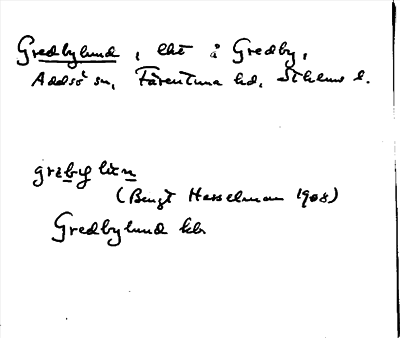 Gredbylund, lht å Gredby,
Adelsö sn, Färentuna hd, Sthlms l.
(Bengt Hesselman 1908)
Gredbylund kbr